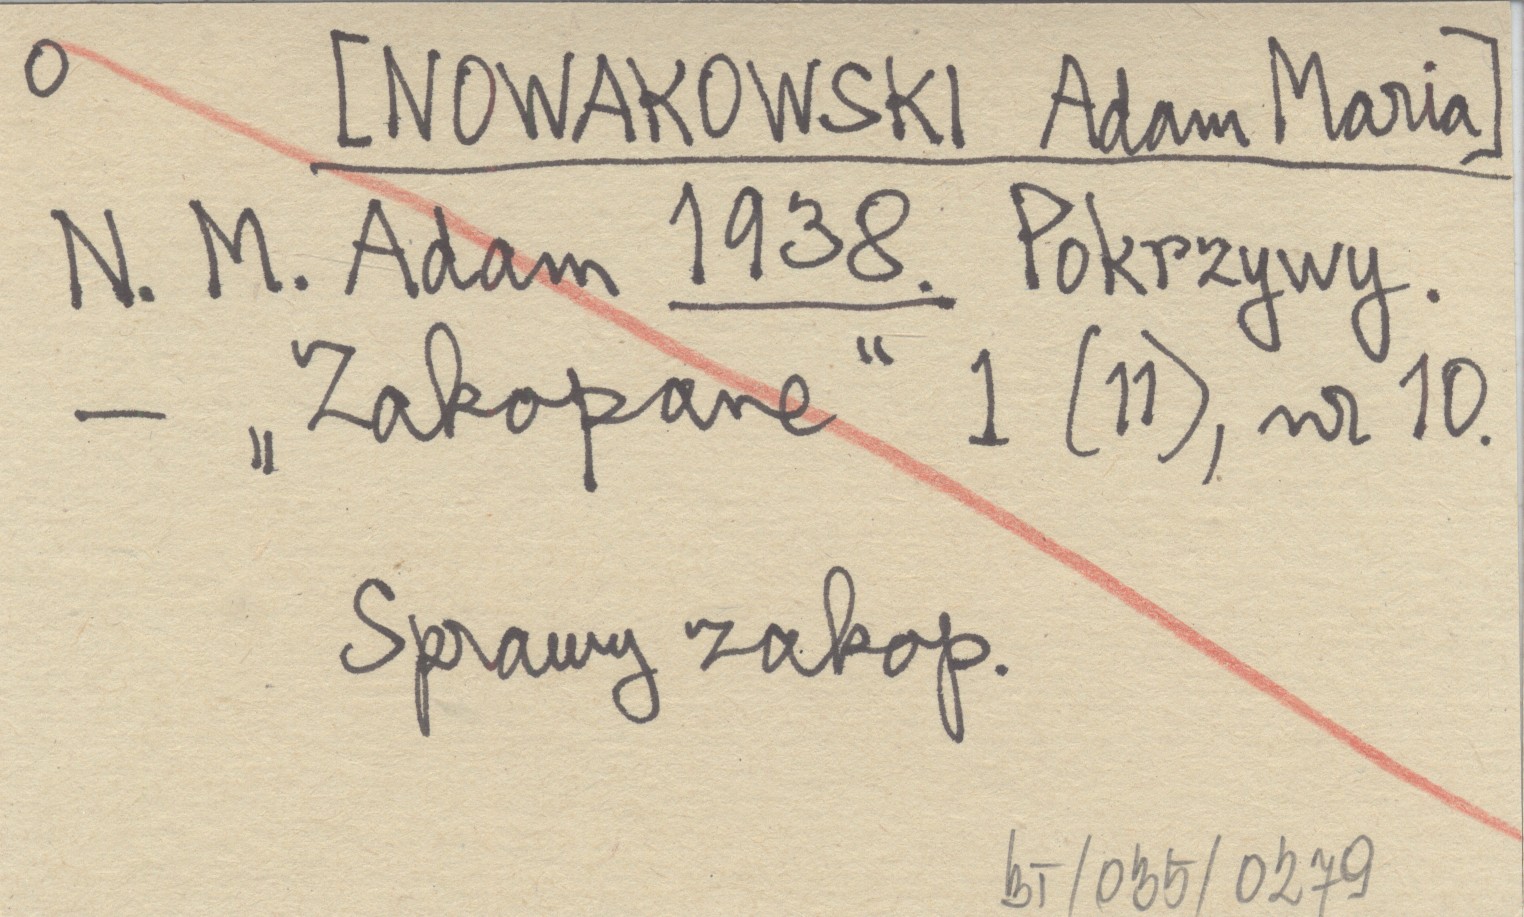 O [NOWAKOWSKI Adam Maria]
N. M. Adam 1938. Pokrzywy.
— „Zakopane“ 1 (11), nr 10.
Sprawy zakop.
BT/035/0279